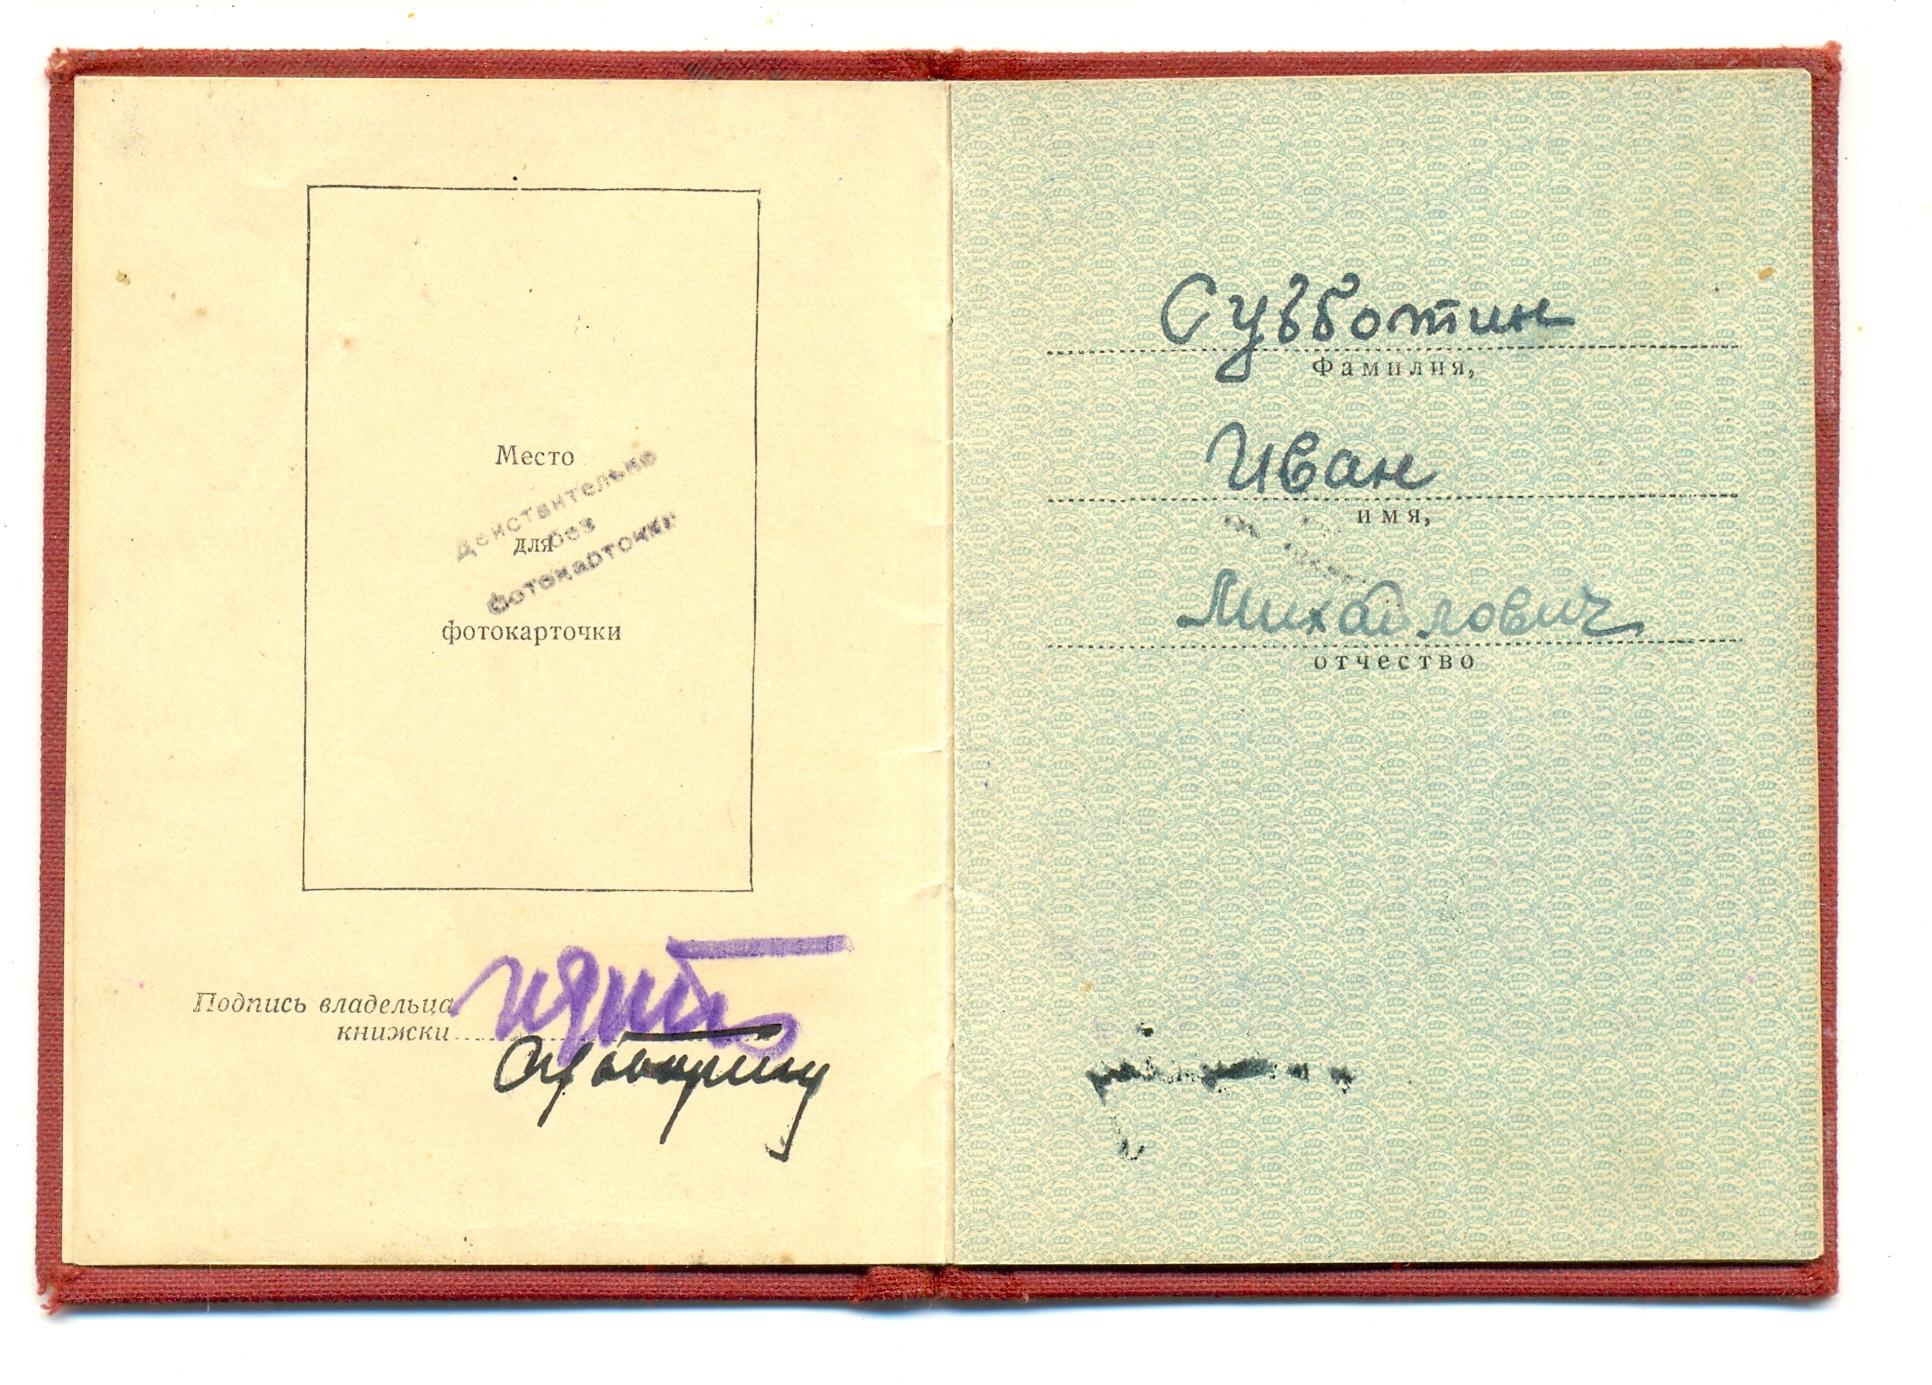 Место
Действительно
для
без
фотокарточки
фотокарточки
Подпись владельца
книжски
Субботин
Фамилия,
Иван
имя,
Михайлович
отчество